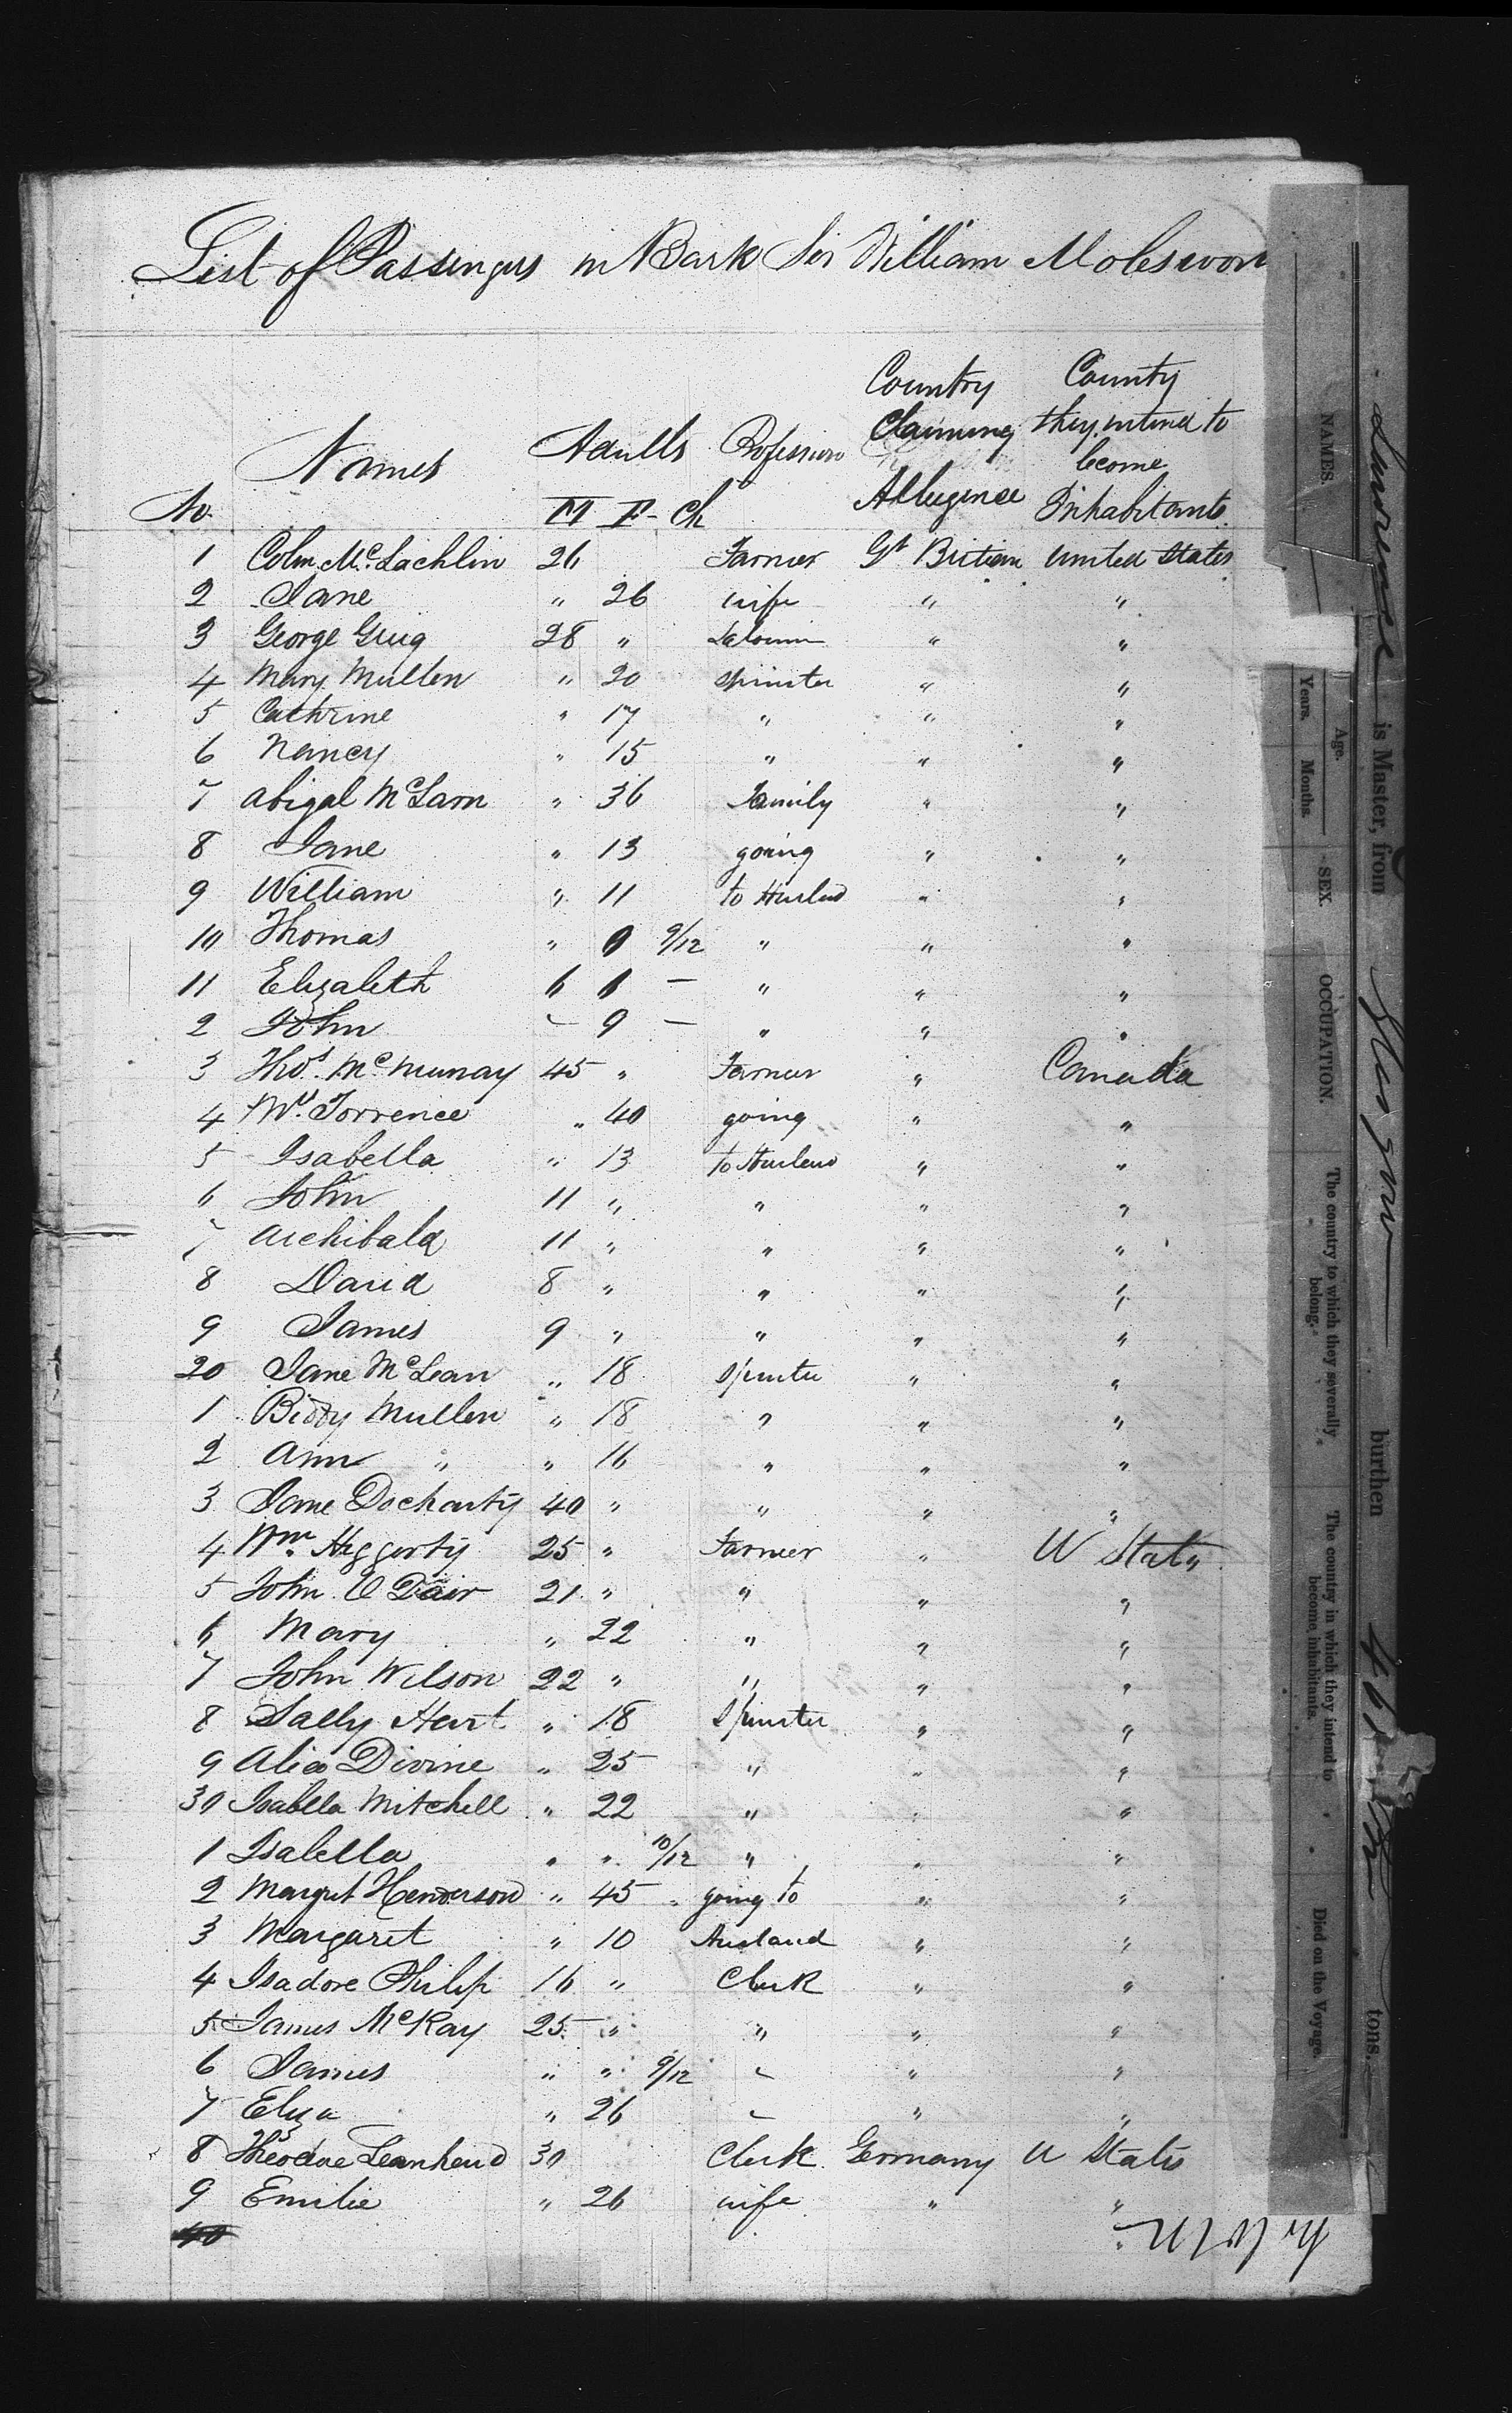 List of Passengers in Bark Sir William Moleswor
No. Names Adults Profession Country Claiming Allegence County they intend to become Inhabitants
M F Ch
1 Colin McLachlin 26 Farmer Gt Britian United States
2 Jane " 26 wife " "
3 George Greig 28 " " "
4 Mary Mullen " 20 spinster " "
5 Cathrine " 17 " " "
6 Nancy " 15 " " "
7 Abigal McLarn " 36 Family " "
8 Jane " 13 going " "
9 William " 11 to Husbnd " "
10 Thomas " 9/12 " " "
11 Elizabeth 6 " " "
2 John 9 — " " "
3 Thos. McMurray 45 " Farmer " Canada
4 Mrs Torrence " 40 going " "
5 Isabella " 13 to Husbend " "
6 John 11 " " " "
7 Archibald 11 " " " "
8 David 8 " " " "
9 James 9 " " " "
20 Jane McLean " 18 Spinster " "
1 Biddy Mullen " 18 " " "
2 Ann " " 16 " " "
3 Jane Docharty 40 " " " "
4 Wm. Heggerty 25 " Farmer " U States
5 John O Dair 21 " " " "
6 Mary " 22 " " "
7 John Wilson 22 " " " "
8 Sally Hart " 18 Spinster " "
9 Alice Divine " 25 " " "
30 Isabella Mitchell " 22 " " "
1 Isabella " " 10/12 " " "
2 Margret Henderson " 45 " going to " "
3 Margaret " 10 Husband " "
4 Isadore Philip 16 " Clerk " "
5 James McKay 25 " " " "
6 James " " 9/12 " " "
7 Eliza " 26 " " "
8 Theodore Leanhend 30 Clerk Germany U States
9 Emilie " 26 wife " "
40
Lawrence is Master, from Glasgow burthen tons,
NAMES. Age. Years. Months. SEX. OCCUPATION. The country to which they severally belong. The country in which they intend to become inhabitants. Died on the Voyage.